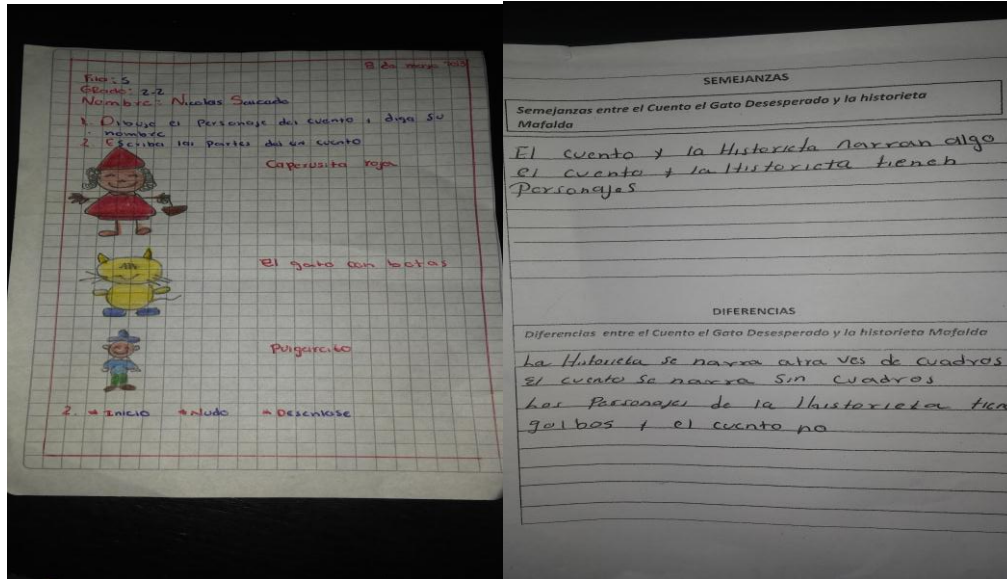 8 de marzo
Fila: 5
Grado: 2-2
Nombre: Nicolas
1. Dibuje el Personaje del cuento y diga su
nombre
2. Escriba las partes de un cuento
Caperusita roja
El gato con botas
Pulgarcito
2. Inicio Nudo Desenlase
SEMEJANZAS
Semejanzas entre el Cuento el Gato Desesperado y la historieta
Mafalda
El cuento y la Historieta narran algo
el cuento y la Historieta tienen
Personajes
DIFERENCIAS
Diferencias entre el Cuento el Gato Desesperado y la historieta Mafalda
La Historieta se narra atra ves de cuadros
El cuento se narra sin cuadros
Los Personajes de la Historieta tien
golbos y el cuento no